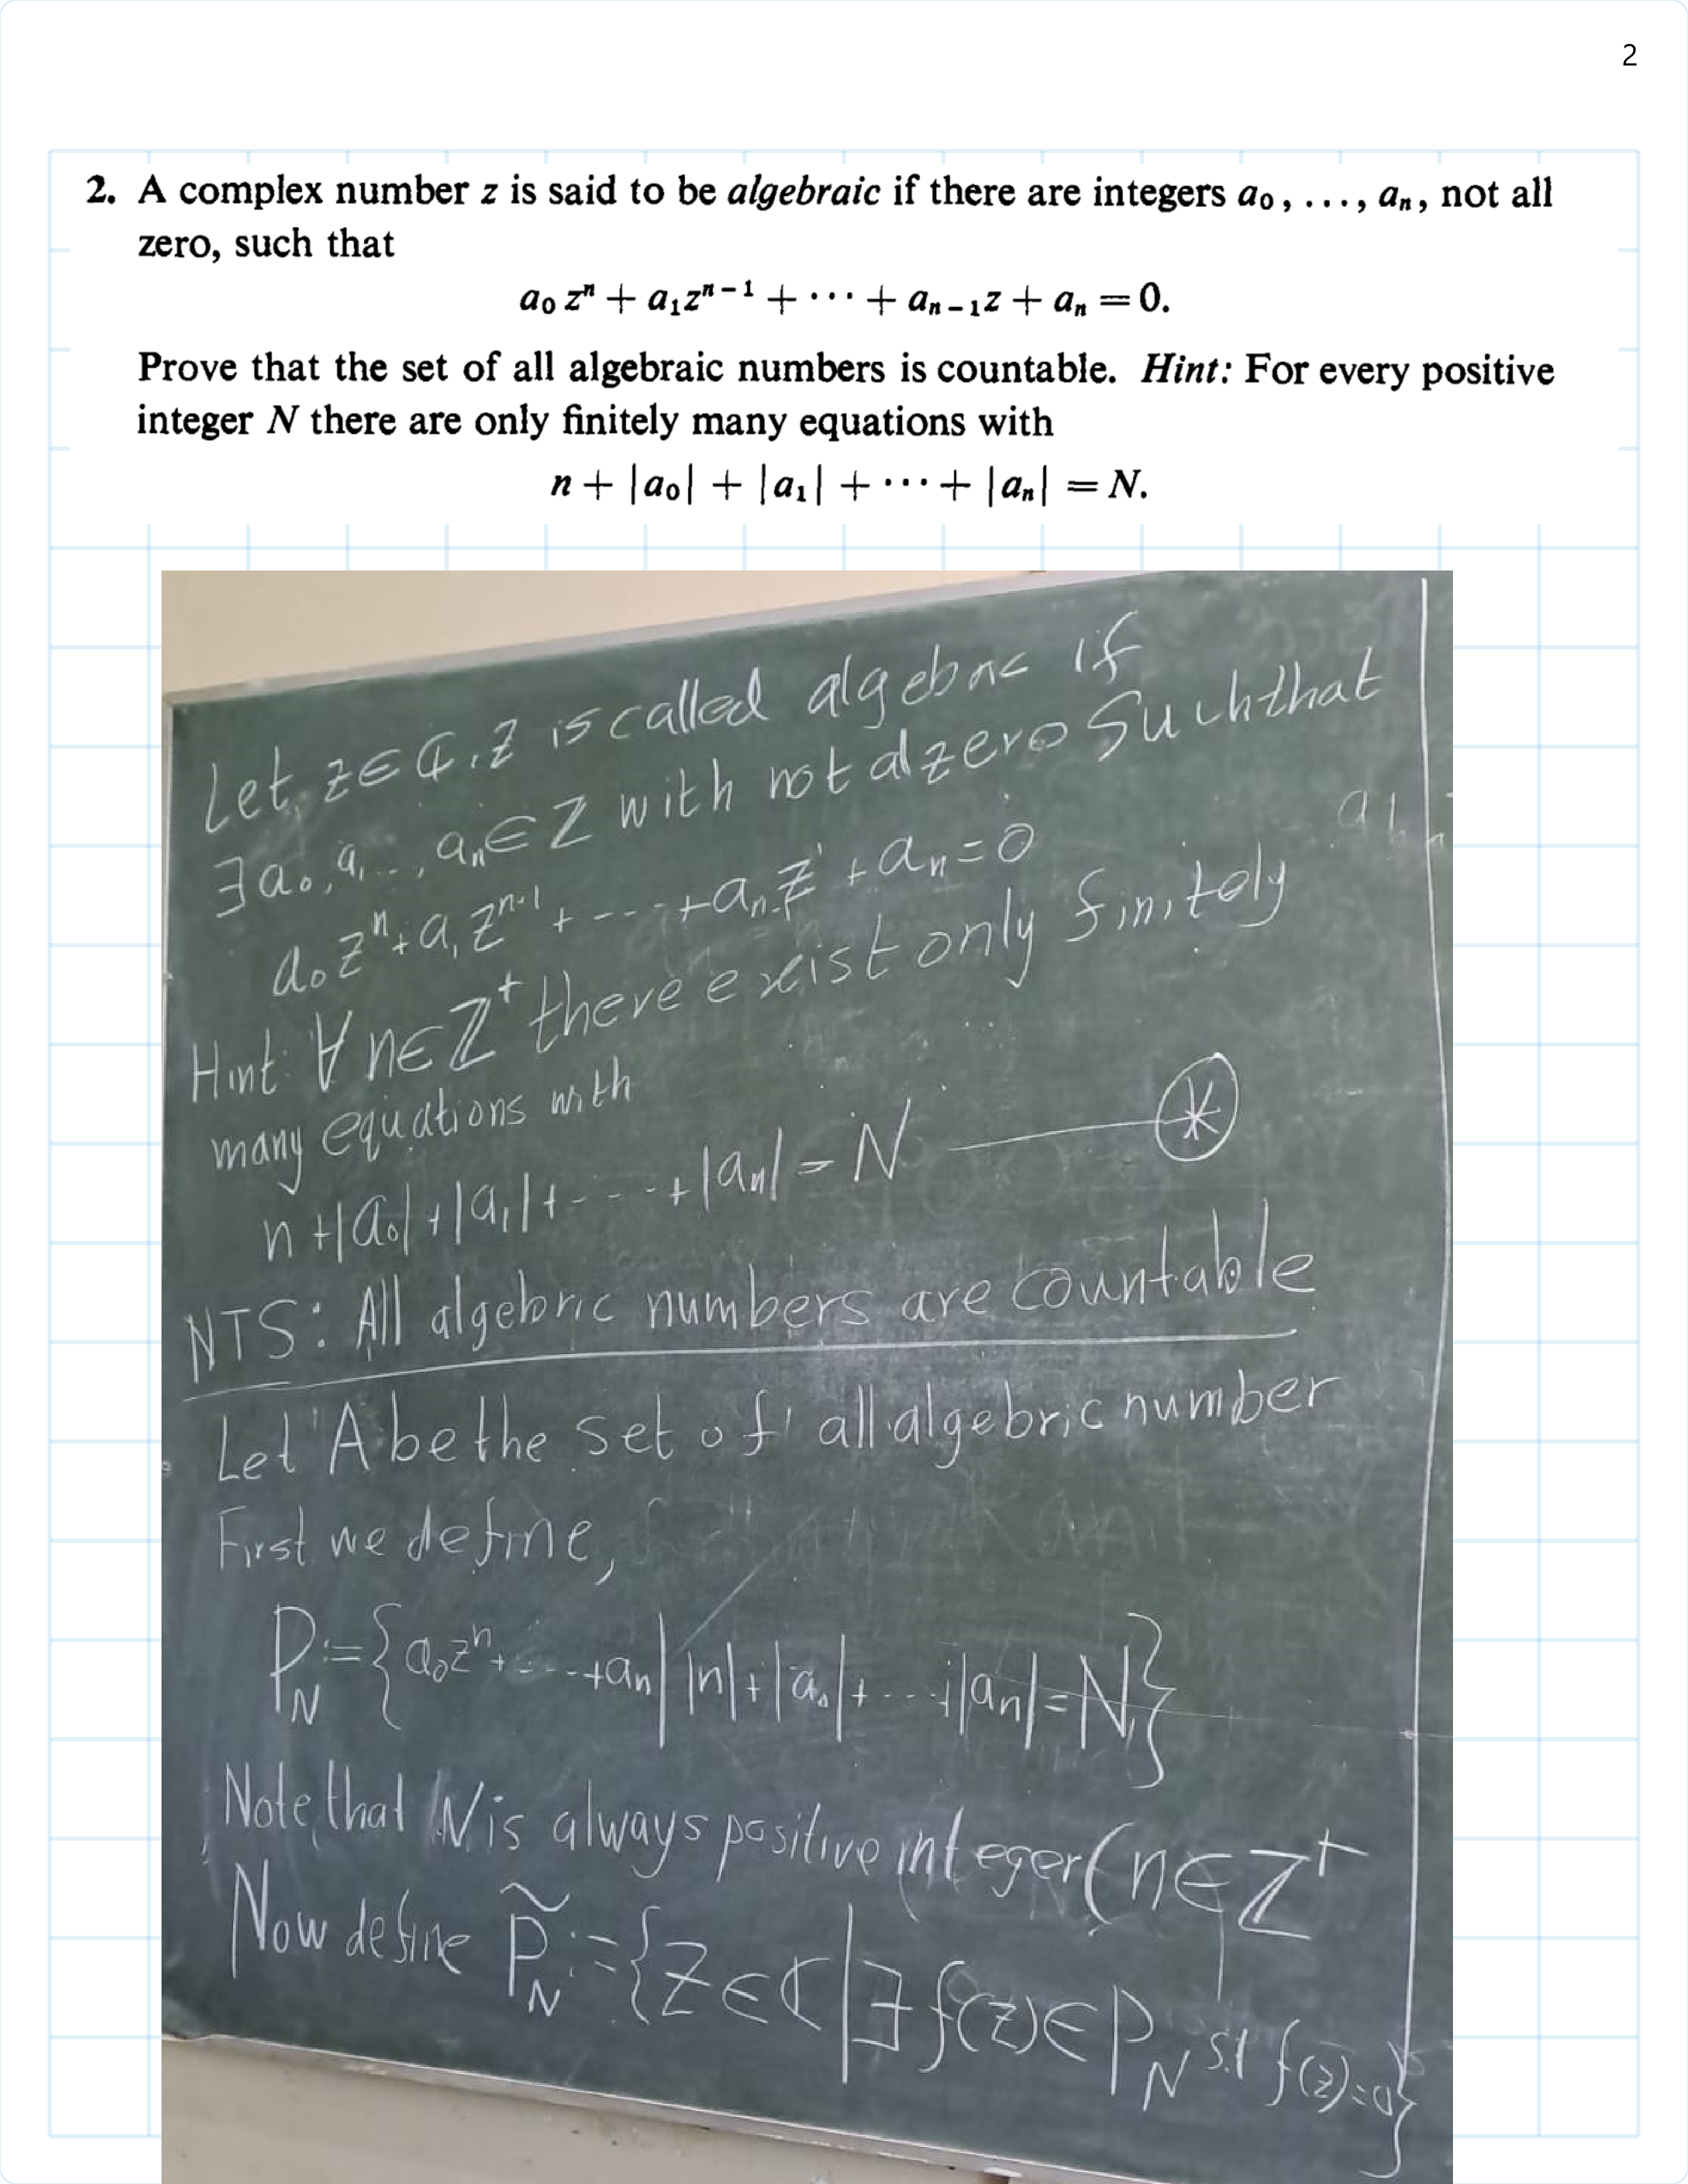 2
2. A complex number z is said to be algebraic if there are integers a₀, ..., aₙ, not all
zero, such that
a₀zⁿ + a₁zⁿ⁻¹ + ··· + aₙ₋₁z + aₙ = 0.
Prove that the set of all algebraic numbers is countable. Hint: For every positive
integer N there are only finitely many equations with
n + |a₀| + |a₁| + ··· + |aₙ| = N.
Let, z∈ℂ, z is called algebric if
∃a₀, a₁ ..., aₙ∈Z with not al zero Such that
a₀zⁿ + a₁zⁿ⁻¹ + ---- + aₙ₋₁z¹ + aₙ = 0
Hint: ∀ n∈ℤ⁺ there exist only finitely
many equations with
n + |a₀| + |a₁| + ---- + |aₙ| = N ——— ⊛
NTS: All algebric numbers are countable
Let A be the set of all algebric number
First we define,
P_N := {a₀zⁿ + ---- + aₙ | |n| + |a₀| + ---- + |aₙ| = N}
Note that N is always positive integer (n∈ℤ⁺
Now define P̃_N := {z∈ℂ | ∃ f(z)∈P_N s.t f(z)=0}